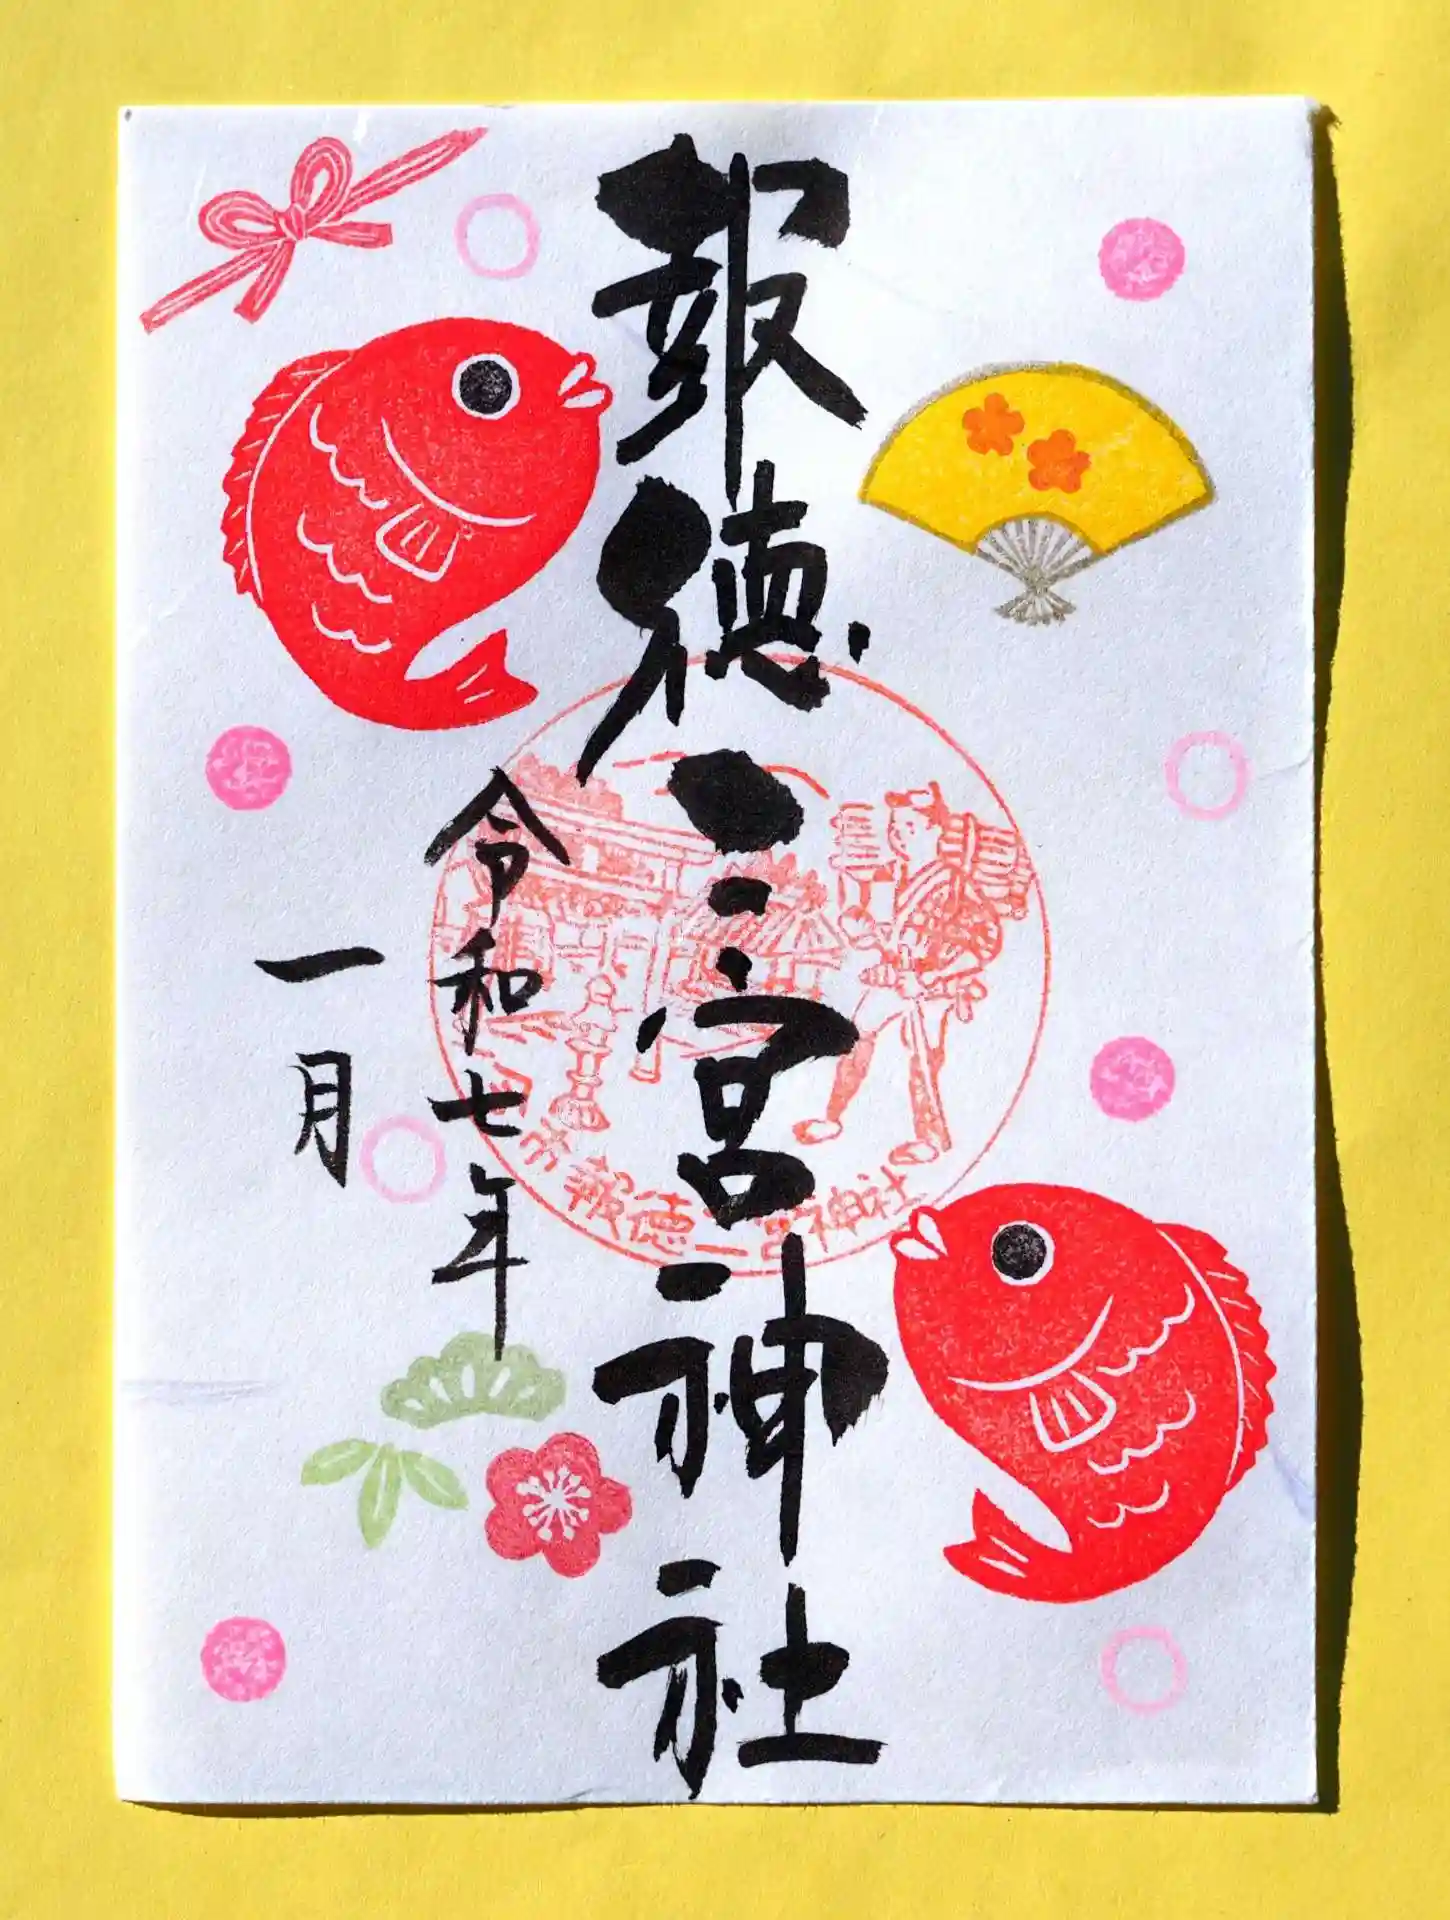 報徳二宮神社
令和七年
一月
報徳二宮神社